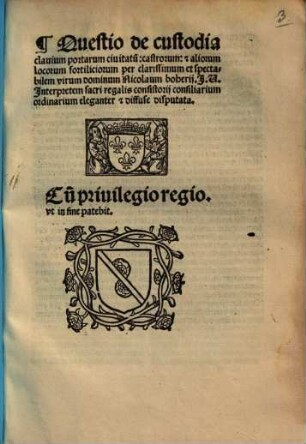 3
¶ Questio de custodia
clauium portarum ciuitatũ ⁊castrorum: ⁊ aliorum
locorum fortiliciorum per clarissimum et specta-
bilem virum dominum Nicolaum boherij. J. U.
Interpretem sacri regalis consistorij consiliarium
ordinarium eleganter ⁊ diffuse disputata.
Cũ priuilegio regio.
vt in fine patebit.